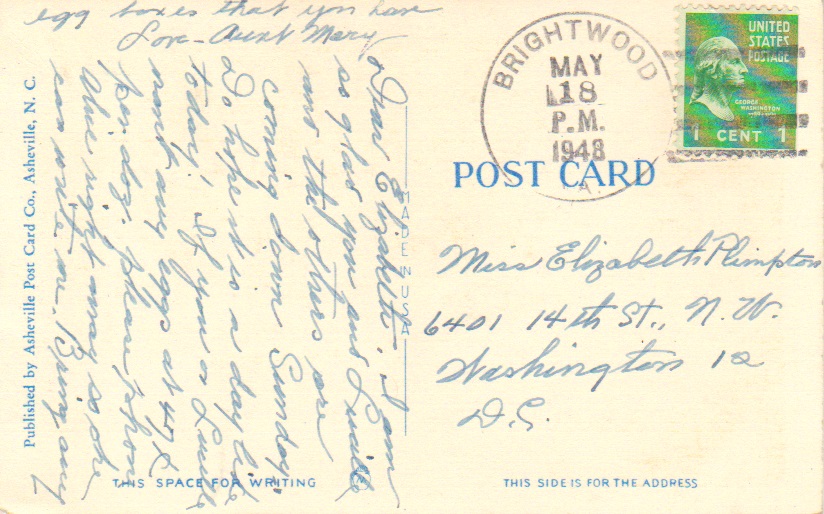 Dear Elizabeth - I am
so glad you and Lucille
and the others are
coming down Sunday.
Do hope it is a day like
today! If you or Lucille
want any eggs at 47¢
per doz. please phone
right away so she
can write me. Bring any
egg boxes that you have
Love - Aunt Mary
Published by Asheville Post Card Co., Asheville, N. C.
MADE IN USA
THIS SPACE FOR WRITING
BRIGHTWOOD
MAY
18
P.M.
1948
UNITED
STATES
POSTAGE
GEORGE
WASHINGTON
1 CENT 1
POST CARD
Miss Elizabeth Plimpton
6401 14th St., N.W.
Washington 12
D.C.
THIS SIDE IS FOR THE ADDRESS